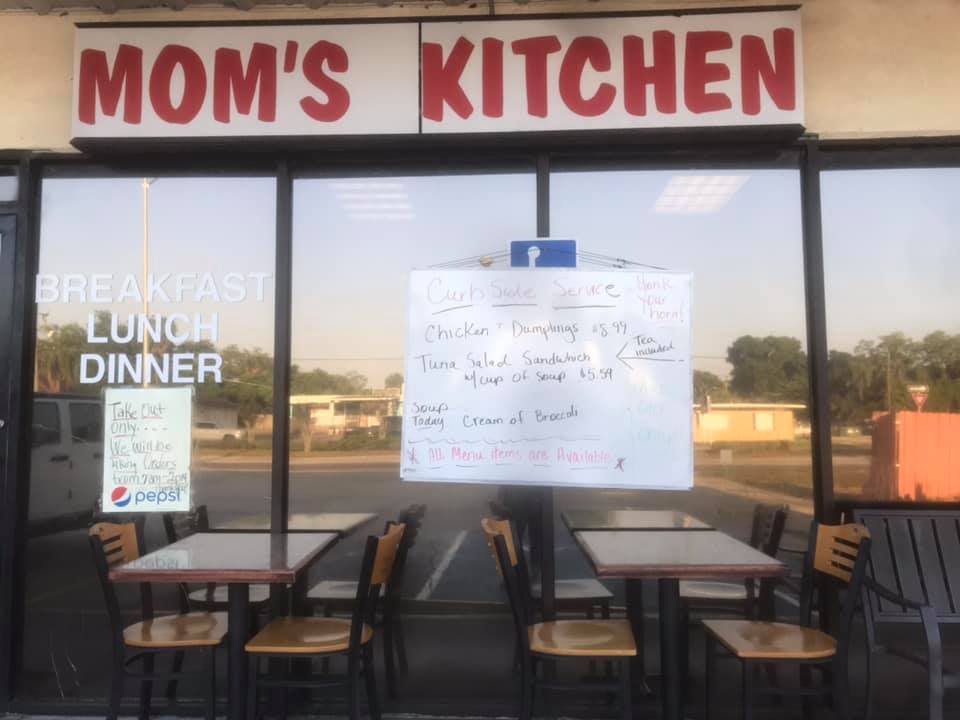 MOM'S KITCHEN
BREAKFAST
LUNCH
DINNER
Take Out
Only....
We will be
taking Orders
from 7am-2pm
pepsi
Curb Side Service
Honk
Your
horn!
Chicken & Dumplings $8.99
Tuna Salad Sandwhich
w/ cup of soup $5.59
Tea
included
Soup
Today Cream of Broccoli
* All Menu items are Available *